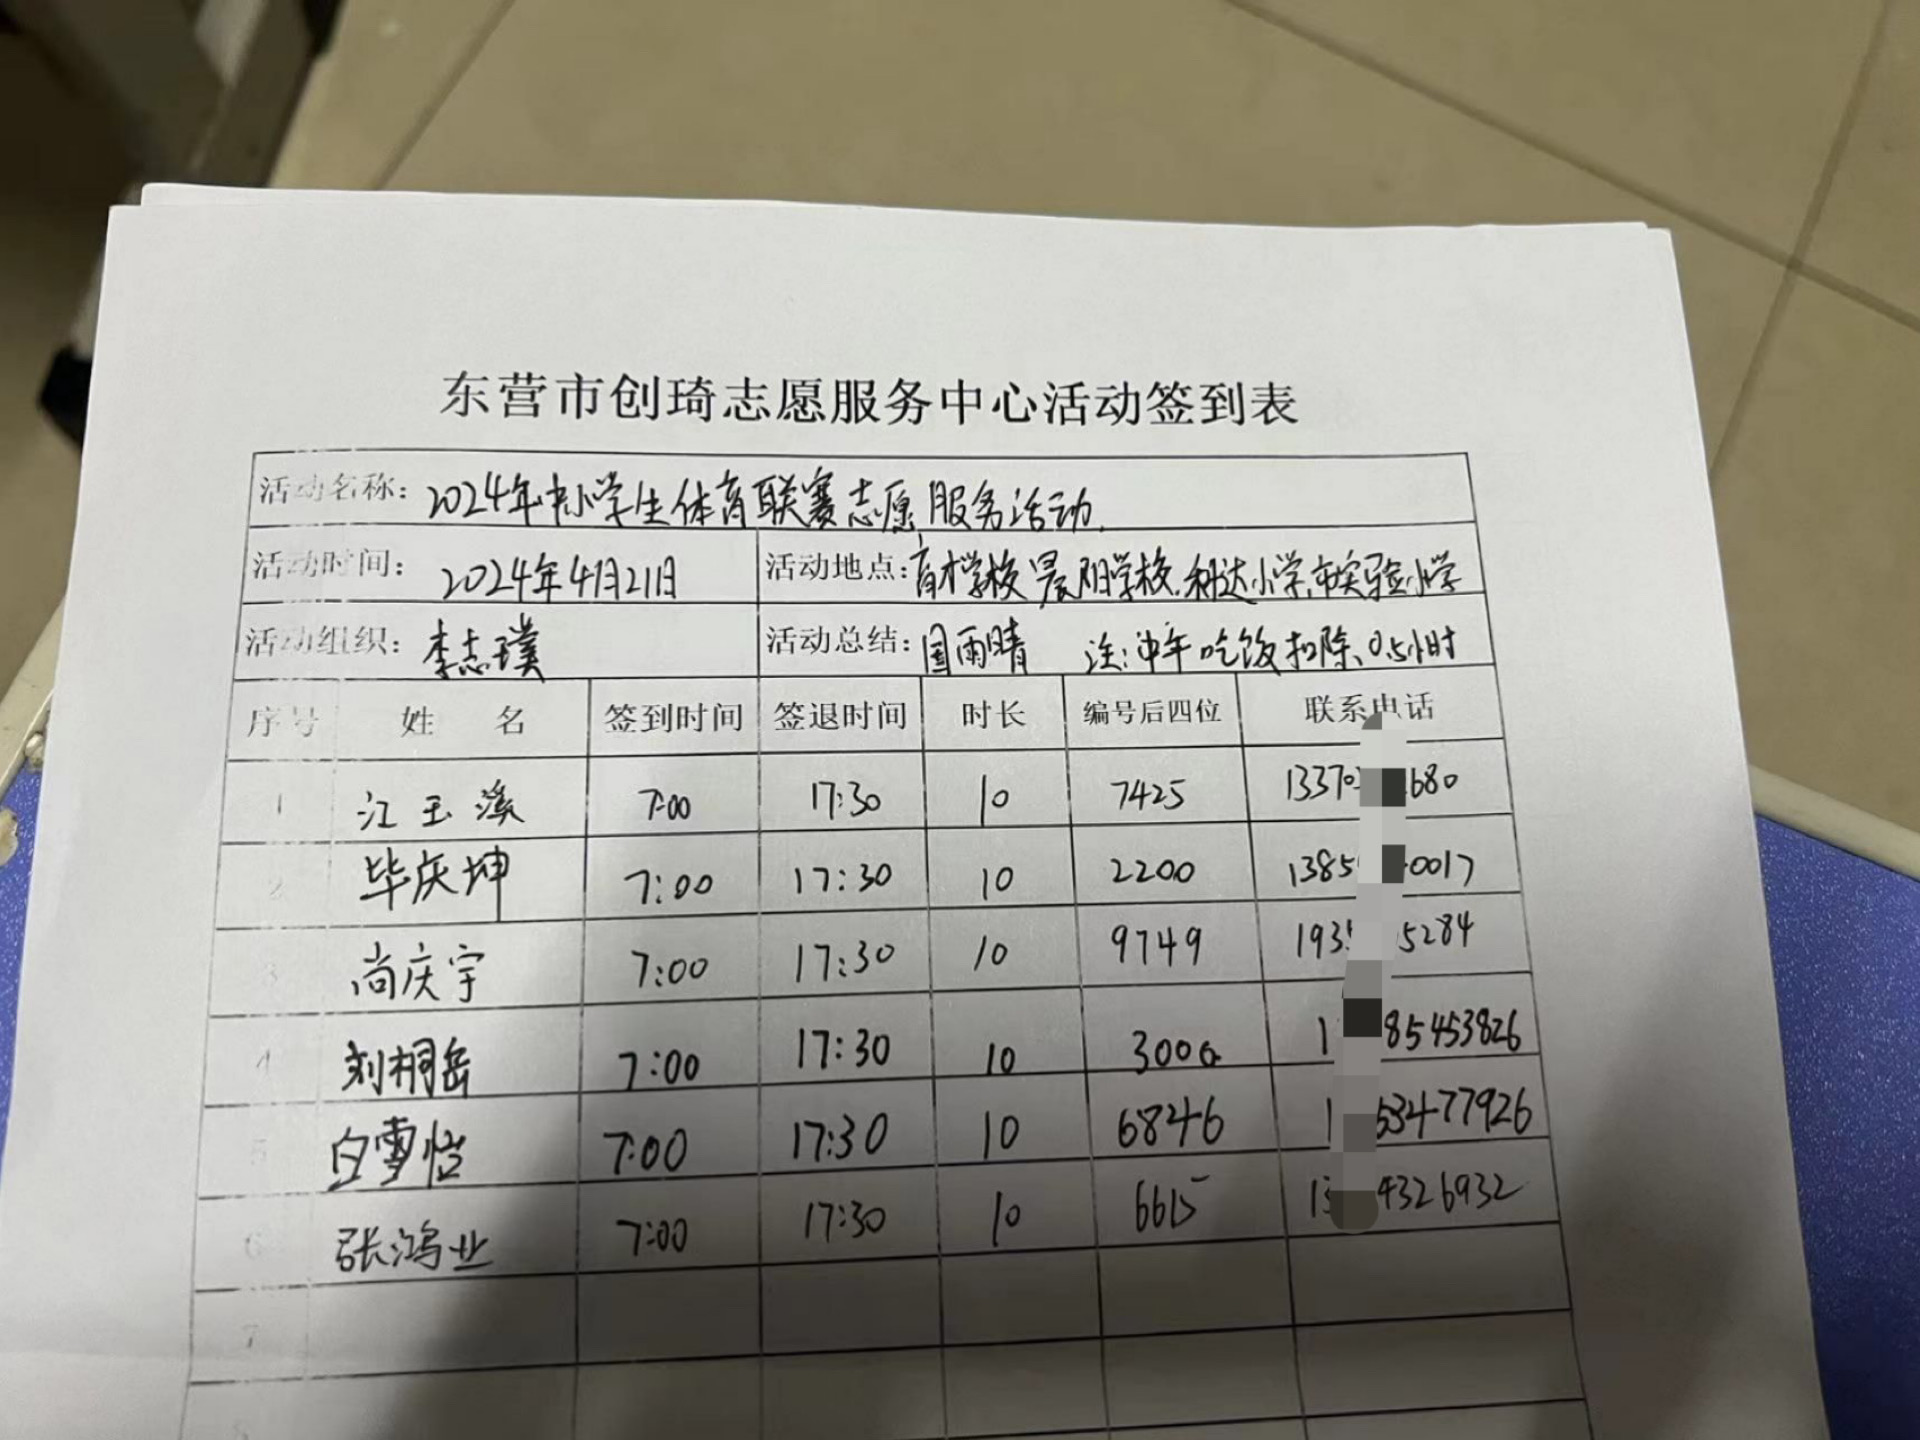 东营市创琦志愿服务中心活动签到表
活动名称: 2024年中小学生体育联赛志愿服务活动.
活动时间: 2024年4月21日 活动地点: 育才学校 晨阳学校.科达小学.市实验小学
活动组织: 李志璞 活动总结: 国雨晴 注:中午吃饭扣除、0.5小时
序号 姓 名 签到时间 签退时间 时长 编号后四位 联系电话
1 江玉溪 7:00 17:30 10 7425 1337 680
2 毕庆坤 7:00 17:30 10 2200 1385 0017
3 尚庆宇 7:00 17:30 10 9749 193 5284
4 刘桐岳 7:00 17:30 10 300 1 85453826
5 白雪恺 7:00 17:30 10 6846 1 53477926
6 张鸿业 7:00 17:30 10 6615 13 4326932
7